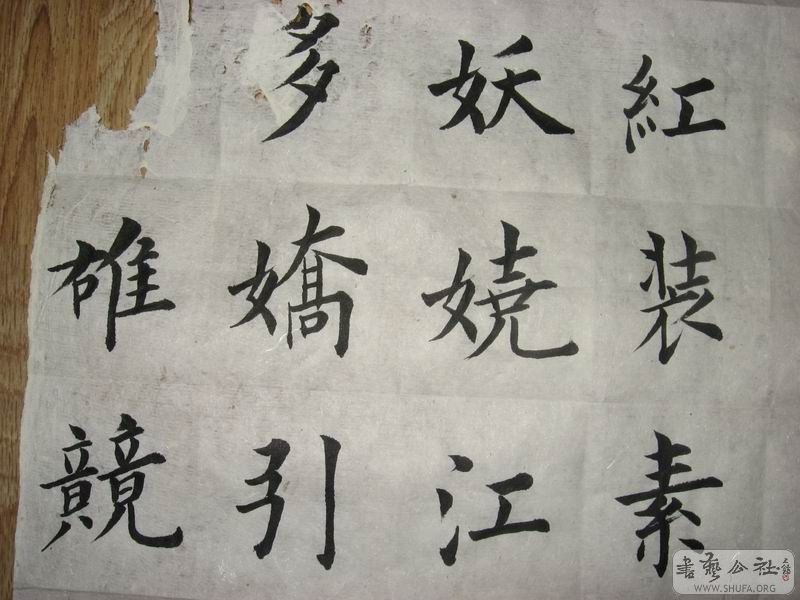 紅装素
妖嬈江
多嬌引
雄競
書藝公社
WWW.SHUFA.ORG